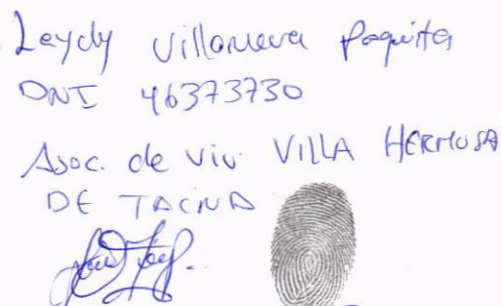 Leydy Villanueva Paquita
DNI 46373730
Asoc. de viv. VILLA HERMOSA
DE TACNA